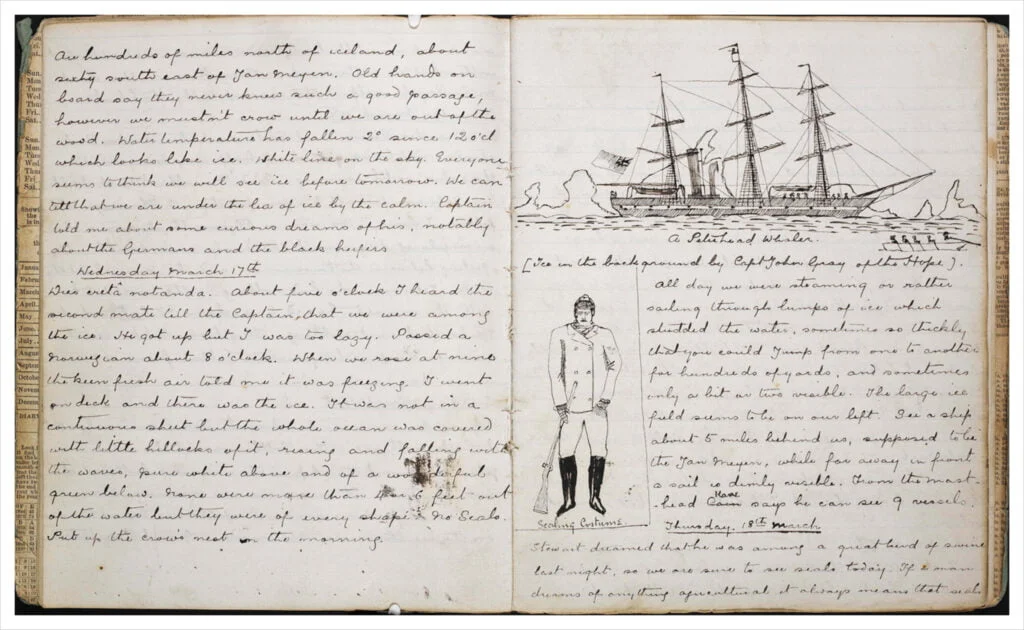 few hundreds of miles north of iceland, about
sixty south east of Jan Meyen. Old hands on
board say they never knew such a good passage,
however we mustn't crow until we are out of the
wood. Water temperature has fallen 2° since 12 o'cl
which looks like ice. White line on the sky. Everyone
seems to think we will see ice before tomorrow. We can
tell that we are under the lea of ice by the calm. Captain
told me about some curious dreams of his, notably
about the Germans and the black
Wednesday March 17th
Dies creta notanda. About five o'clock I heard the
second mate tell the Captain, that we were among
the ice. He got up but I was too lazy. Passed a
Norwegian about 8 o'clock. When we rose at nine
the keen fresh air told me it was freezing. I went
on deck and there was the ice. It was not in a
continuous sheet but the whole ocean was covered
with little hillocks of it, rising and falling with
the waves, pure white above and of a wonderful
green below. None were more than 4 or 6 feet out
of the water but they were of every shape. No Seals.
Put up the crows nest in the morning.
A Peterhead Whaler.
[Ice in the background by Capt John Gray of the Hope].
All day we were steaming or rather
sailing through lumps of ice which
studded the water, sometimes so thickly
that you could jump from one to another
for hundreds of yards, and sometimes
only a bit or two visible. The large ice
field seems to be on our left. See a ship
about 5 miles behind us, supposed to be
the Jan Meyen, while far away in front
a sail is dimly visible. From the mast
-head says he can see 9 vessels.
Sealing Costume.
Thursday, 18th March
Stewart dreamed that he was among a great herd of swine
last night, so we are sure to see seals today. If a man
dreams of anything agricultural it always means that seals
Sun.
Mon
Tues
Wed
Thu
Fri.
Sat.
Sun.
Mon
Tues
Wed
Thu
Fri.
Sat.
Janua
Febru
March
April
May
June
July
Augus
Septem
Octobe
Novem
Decem
DIARY